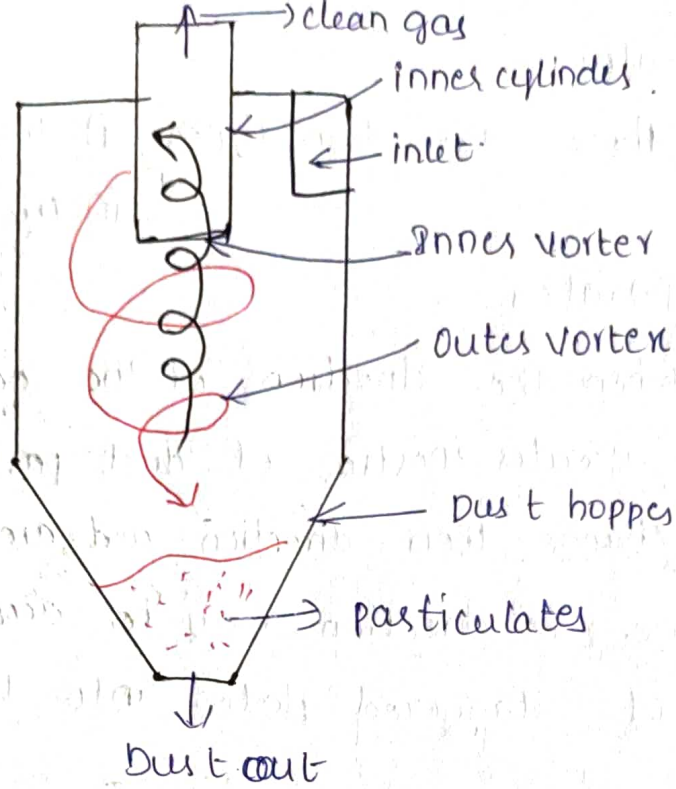 clean gas
inner cylinder.
inlet.
Inner vortex
Outer vortex
Dust hopper
particulates
Dust out